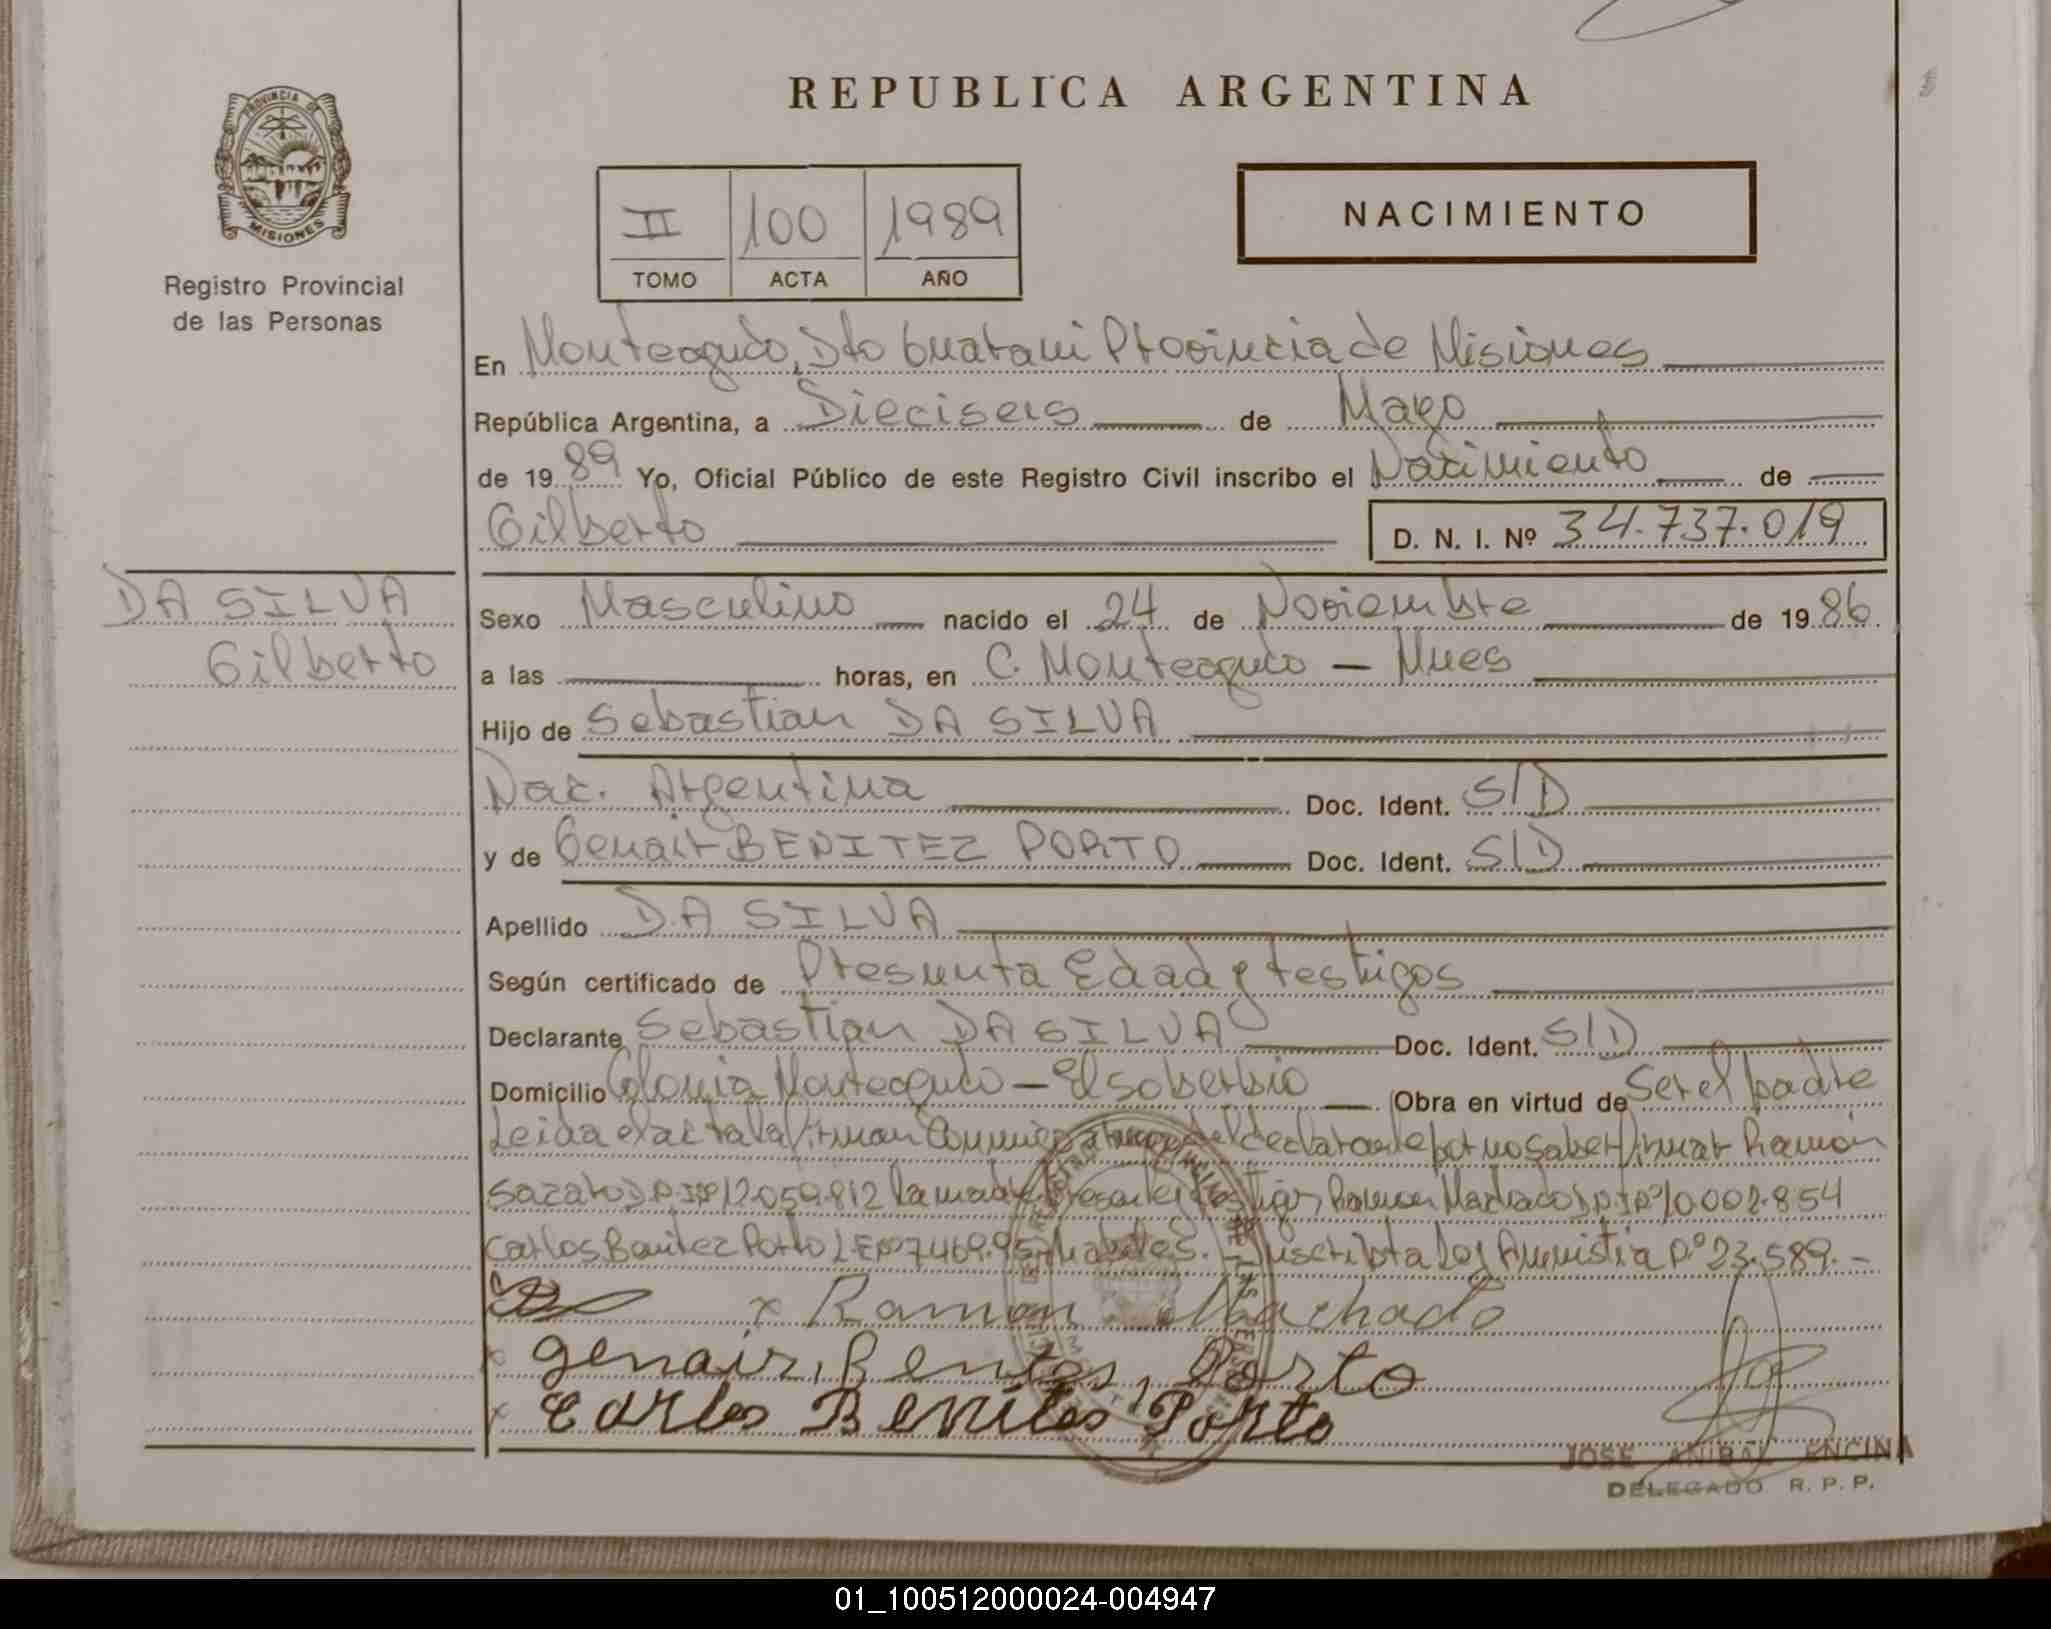 REPUBLICA ARGENTINA
PROVINCIA DE
MISIONES
Registro Provincial
de las Personas
II 100 1989
TOMO ACTA AÑO
NACIMIENTO
En Monteagudo, Dto Guarani Provincia de Misiones
República Argentina, a Dieciseis de Mayo
de 1989 Yo, Oficial Público de este Registro Civil inscribo el Nacimiento de
Gilberto D. N. I. Nº 34.737.019
DA SILVA
Gilberto
Sexo Masculino nacido el 24 de Noviembre de 1986
a las horas, en C. Monteagudo - Mnes
Hijo de Sebastian DA SILVA
Nac. Argentina Doc. Ident. S/D
y de Genair BENITEZ PORTO Doc. Ident. S/D
Apellido DA SILVA
Según certificado de Presunta Edad y testigos
Declarante Sebastian DA SILVA Doc. Ident. S/D
Domicilio Colonia Monteagudo - El soberbio Obra en virtud de Ser el padre
Leida el acta la firman Conmigo del declarante por no saber firmar Ramón
12.059.812 la madre testigos Ramon Machado D.N.I Nº 10.002.854
Carlos Benitez Porto L.E Nº habiles. Inscripta Ley Amnistia Nº 23.589.-
x Ramon Machado
x genair, Bentes, Porto
x Carlos Benites Porto
JOSE ANIBAL ENCINA
DELEGADO R. P. P.
01_100512000024-004947